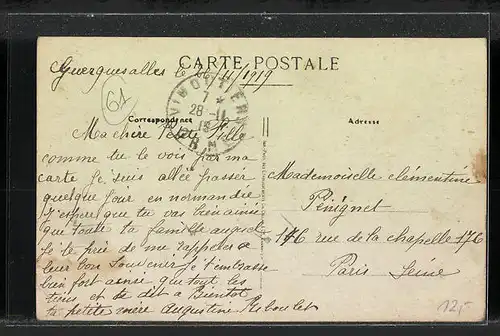 CARTE POSTALE
Guerquesalles le 26/11/1919
VIMOUTIERS
7 *
28-11
19
ORNE
61
Correspondance
Adresse
Ma chere Petite Fille
comme tu le vois par ma
carte je suis allée passer
quelque jour en normandie
J'espere que tu vas bien ainsi
que toute ta famille auquel
je te prie de me rappeler a
leur bon souvenir je t'embrasse
bien fort ainsi que tout les
tiens et te dit a Bientot
ta petite mere Augustine Reboulet
Mademoiselle clémentine
Pérignet
176 rue de la chapelle 176
Paris Seine
12,-